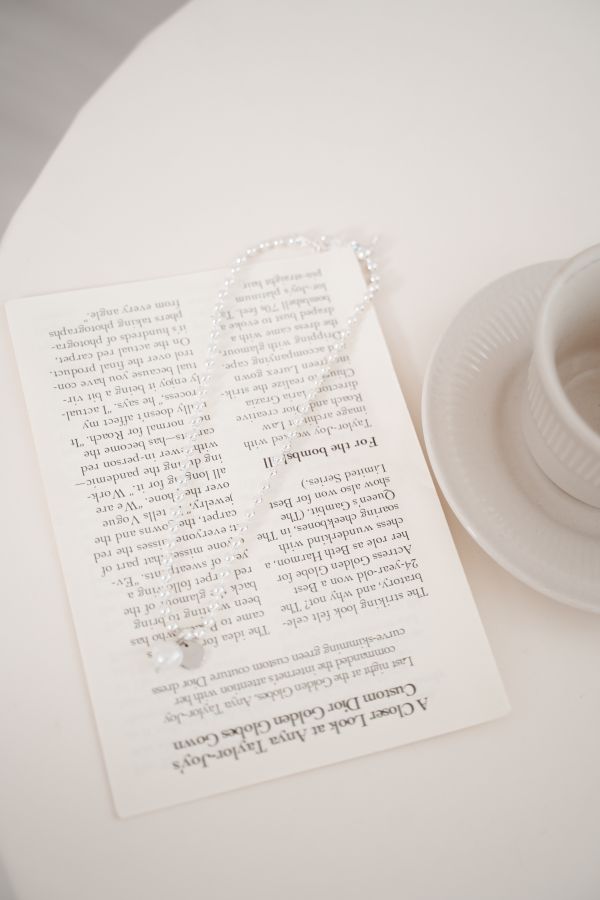 A Closer Look at Anya Taylor-Joy's
Custom Dior Golden Globes Gown
Last night at the Golden Globes, Anya Taylor-Joy
commanded the internet's attention with her
curve-skimming green custom couture Dior
The striking look felt cele-
bratory, and why not? The
24-year-old won a Best
Actress Golden Globe for
her role as Beth Harmon, a
chess wunderkind with
soaring cheekbones, in The
Queen's Gambit. (The
show also won for Best
Limited Series.)
For the
Taylor-Joy worked with
image architect Law
Roach and creative
director Maria Grazia
Chiuri to realize the strik-
ing green Lurex gown
and accompanying cape.
Dripping with glamour,
the dress came with a
draped bust to evoke a
bombshell 70s feel.
lor-Joy's platinum
pin-straight hair
The idea for the
came to who has
been wanting to bring
back glamour of the
red carpet during a
year of sweatpants. "Ev-
everyone misses that part
misses the red
carpet, the gowns and the
jewelry," tells Vogue
over the phone. "We are
all longing for it." Work-
ing during the pandemic—
with in-person red
has become the
new normal for Roach. "It
really doesn't affect my
process," he says. "I actual-
ly enjoy it being a bit vir-
tual because you have con-
trol over the final product.
On the actual red carpet,
it's hundreds of photogra-
phers taking photographs
from every angle."